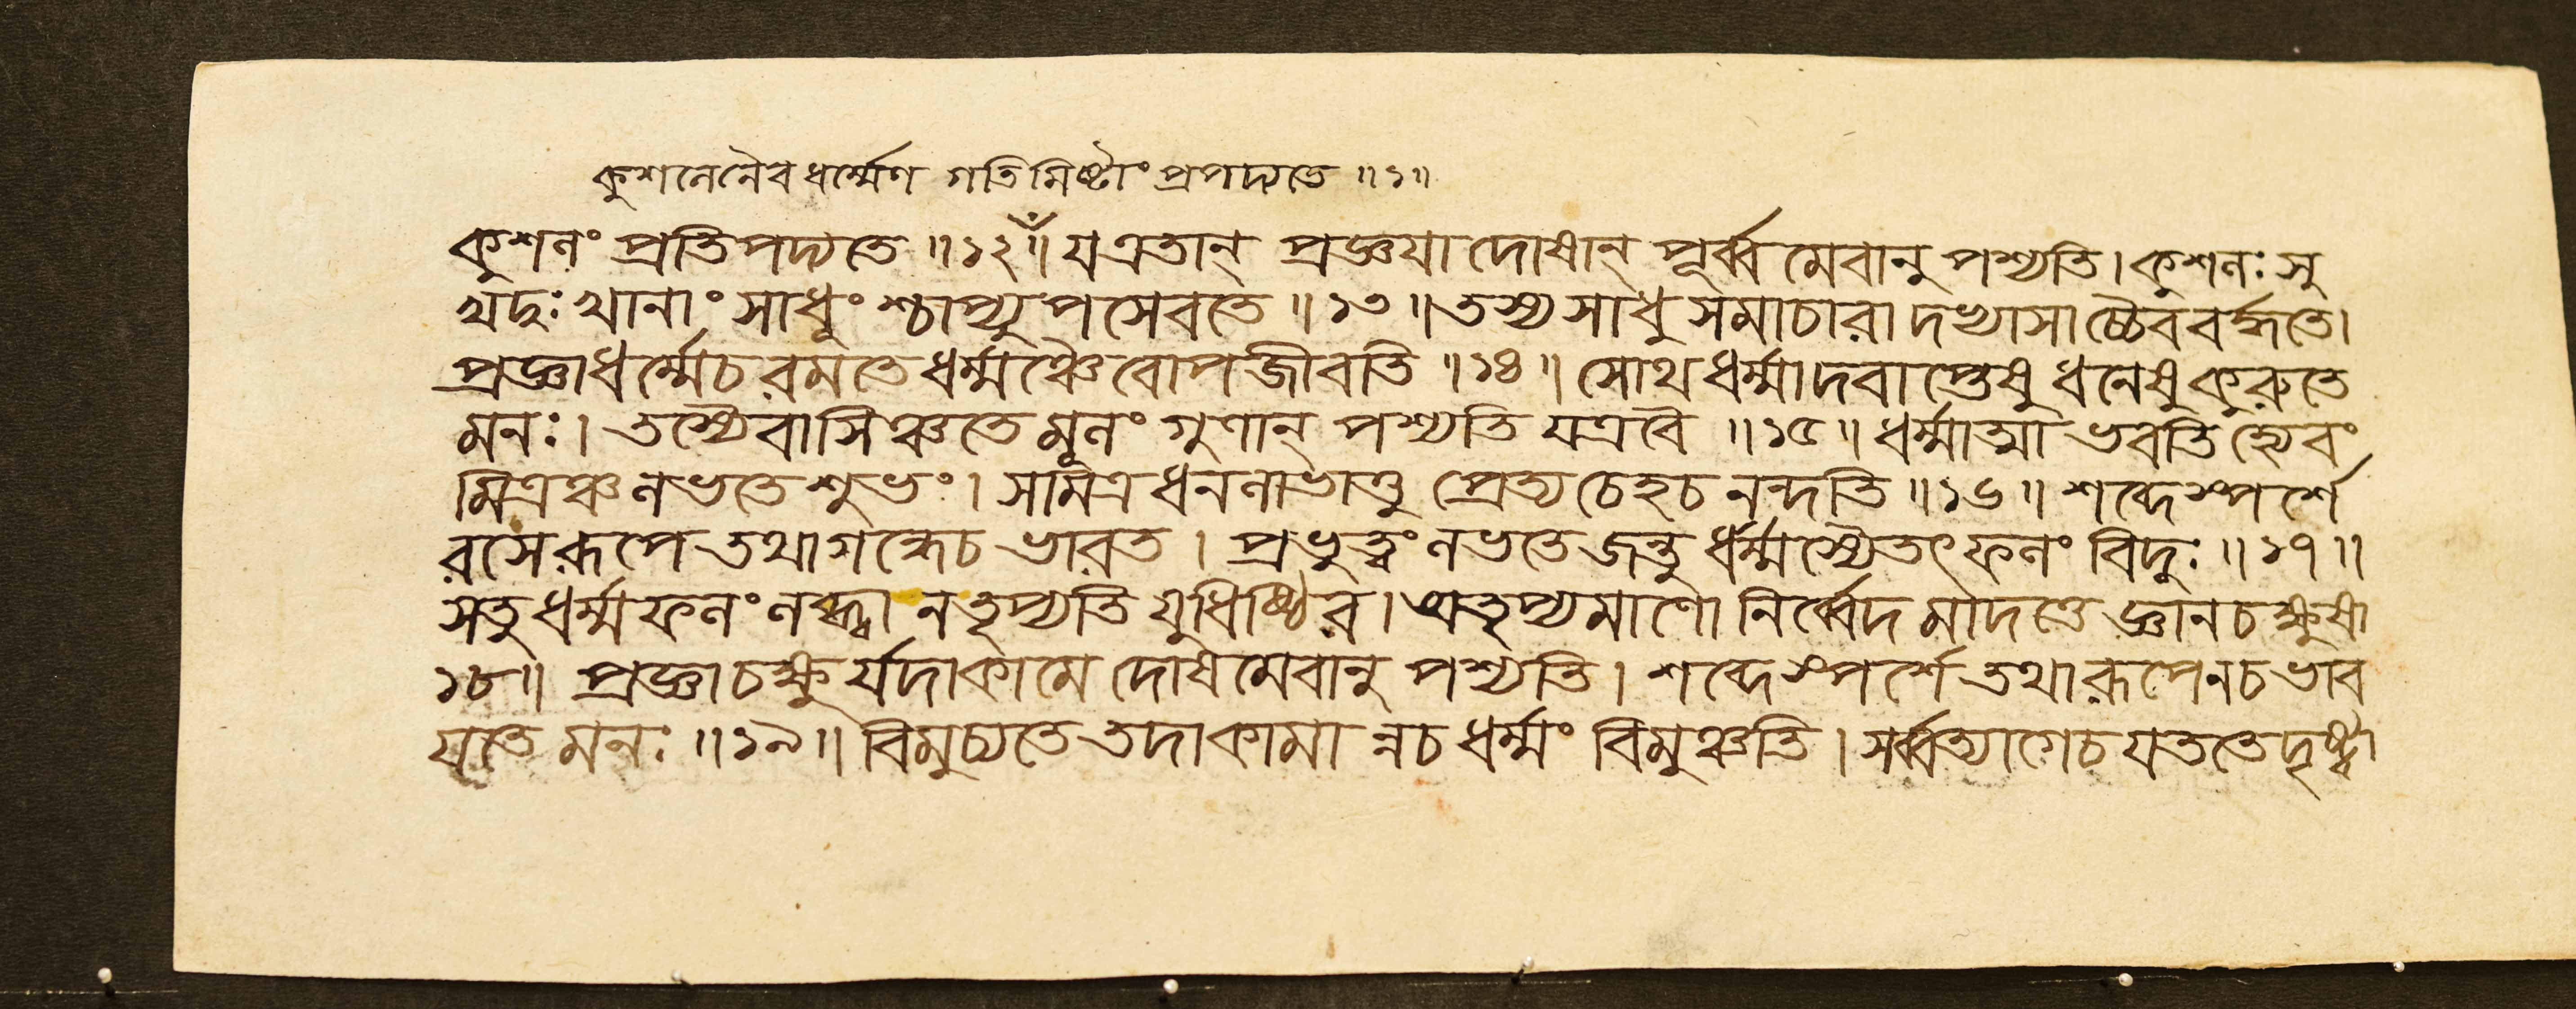 কুশলেনৈব ধর্ম্মেণ গতিমিষ্টাং প্রপদ্যতে ॥১॥
কুশলং প্রতিপদ্যতে ॥১২॥ য এতান্ প্রজ্ঞয়া দোষান্ পূর্ব্বমেবানুপশ্যতি। কুশলঃ সু
খদুঃখানাং সাধূংশ্চাপ্যুপসেবতে ॥১৩॥ তস্য সাধুসমাচারাদভ্যাসাচ্চৈব বর্দ্ধতে।
প্রজ্ঞা ধর্ম্মে চ রমতে ধর্ম্মঞ্চৈবোপজীবতি ॥১৪॥ সোথ ধর্ম্মাদবাপ্তেষু ধনেষু কুরুতে
মনঃ। তস্যৈবাসিঞ্চতে মূলং গুণান্ পশ্যতি যত্র বৈ ॥১৫॥ ধর্ম্মাত্মা ভবতি হ্যেবং
মিত্রঞ্চ লভতে শুভং। স মিত্রধনলাভাত্তু প্রেত্য চেহ চ নন্দতি ॥১৬॥ শব্দে স্পর্শে
রসে রূপে তথা গন্ধে চ ভারত। প্রভুত্বং লভতে জন্তু ধর্ম্মস্যৈতৎ ফলং বিদুঃ ॥১৭॥
স তু ধর্ম্মফলং লব্ধ্বা ন তৃপ্যতি যুধিষ্ঠির। অতৃপ্যমাণো নির্ব্বেদমাদত্তে জ্ঞানচক্ষুষা
১৮॥ প্রজ্ঞাচক্ষুর্যদা কামে দোষমেবানুপশ্যতি। শব্দে স্পর্শে তথা রূপে ন চ ভাব
যতে মনঃ ॥১৯॥ বিমুচ্যতে তদা কামান্ন চ ধর্ম্মং বিমুঞ্চতি। সর্ব্বত্যাগে চ যততে দৃষ্ট্বা